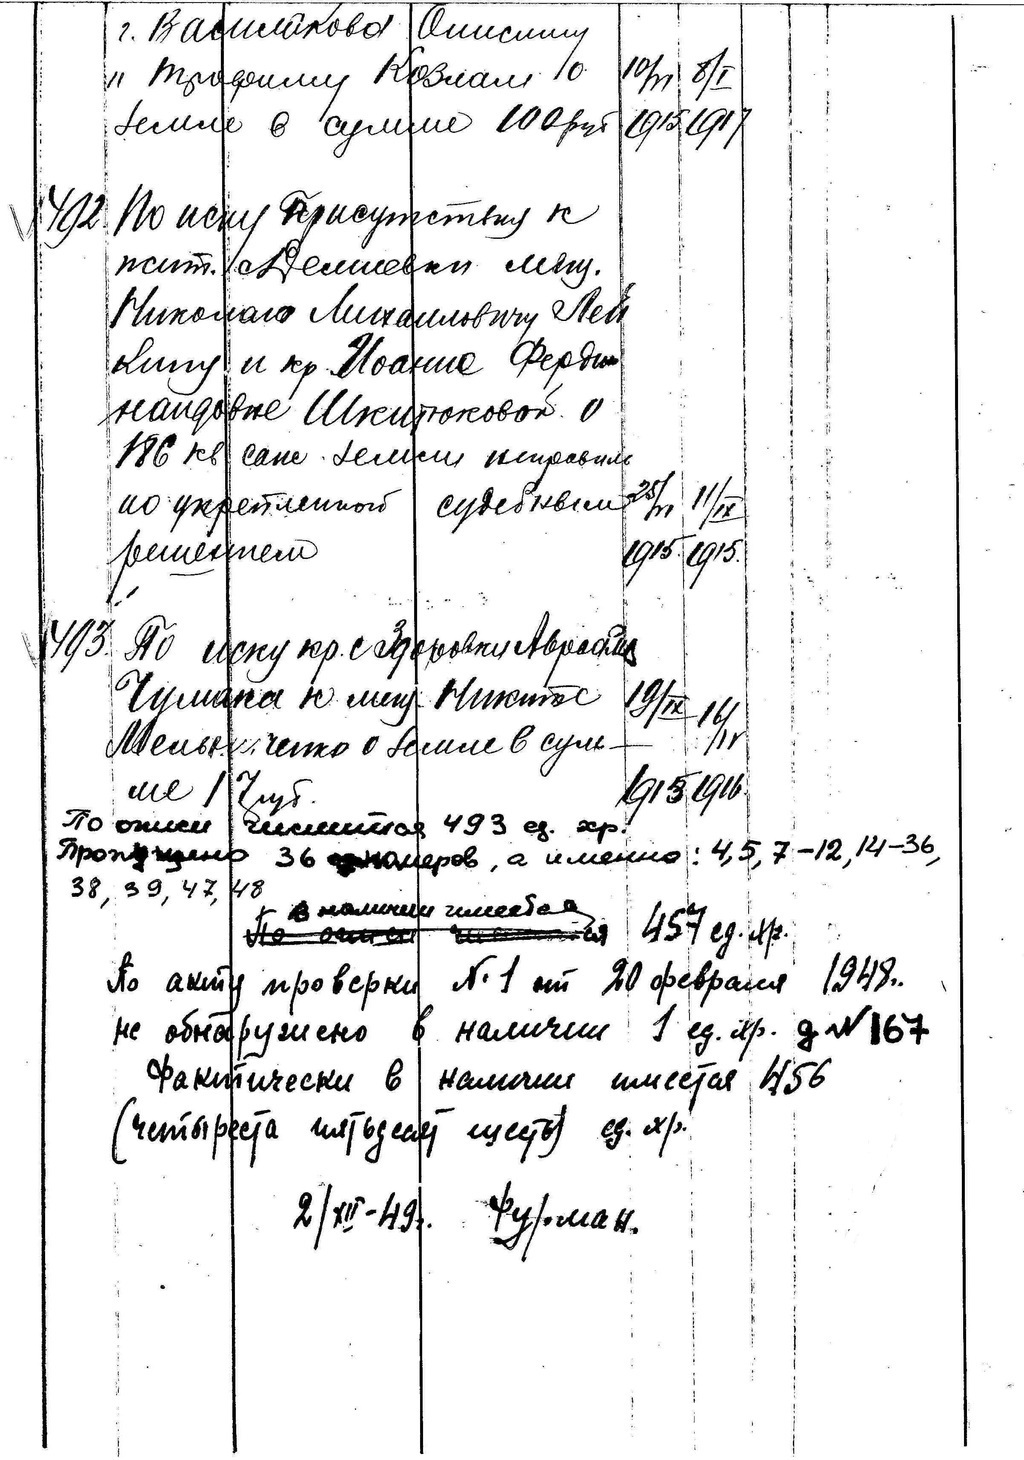 г. Василькова Онисиму
и Трофиму Козлам о 10/VI 8/I
земле в сумме 100 руб 1915 1917
492 По иску Присутствия к
жит. с Демиевки мещ.
Николаю Михайловичу Лей
кину и кр. Иоанне Ферди
нандовне Шкитюковой о
186 кв саж. земли неправиль
но укрепленной судебным 25/VI 11/IX
решением 1915 1915.
493 По иску кр. с Здоровки Авраама
Чумака к мещ. Никите 19/IX 16/IV
Мельниченко о земле в сум-
ме 17 руб. 1915 1916
По описи числится 493 ед. хр.
Пропущено 36 номеров, а именно: 4, 5, 7-12, 14-36,
38, 39, 47, 48
в наличии имеется
По описи числится 457 ед. хр.
По акту проверки № 1 от 20 февраля 1948г.
не обнаружено в наличии 1 ед. хр. д № 167
Фактически в наличии имеется 456
(четыреста пятьдесят шесть) ед. хр.
2/XII-49г. Фурман.